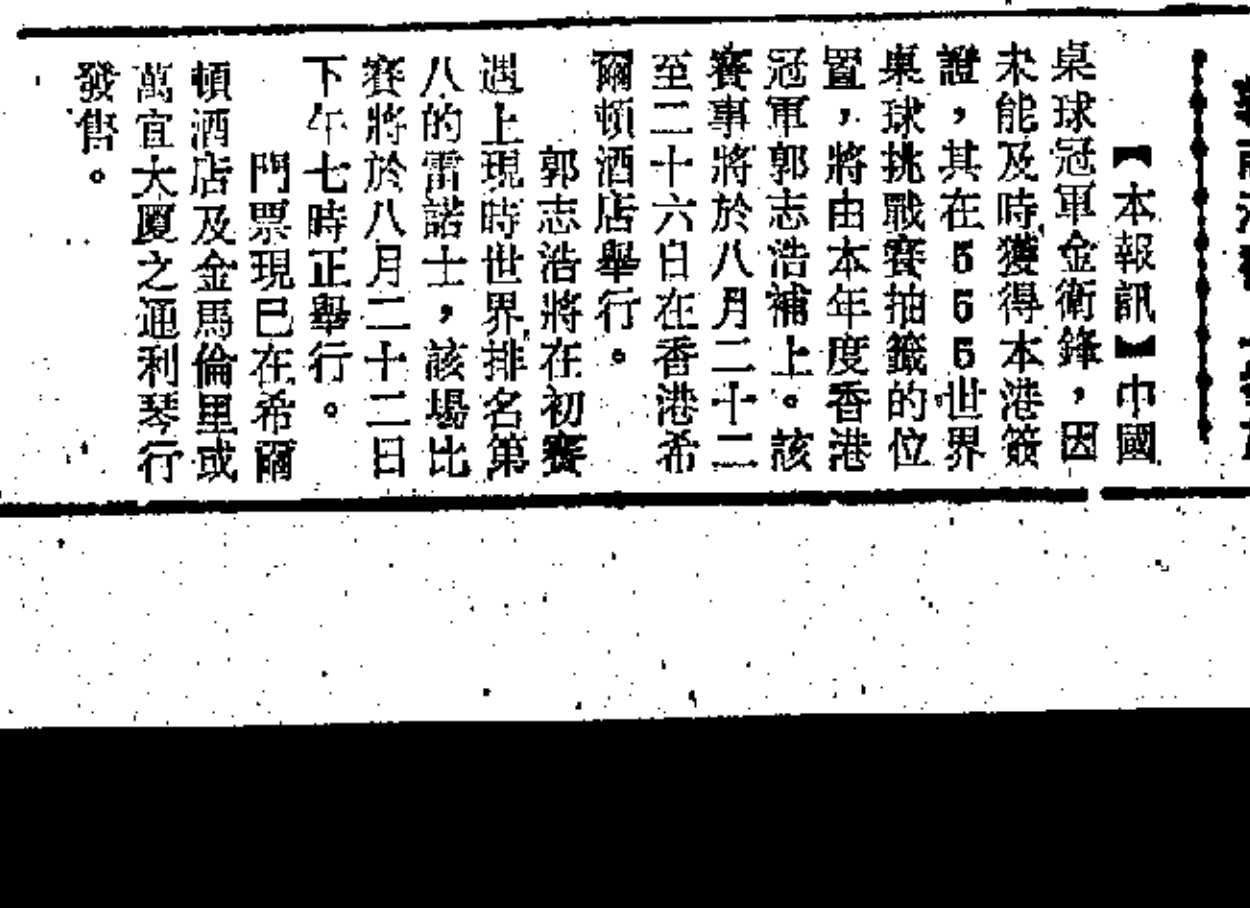 【本報訊】中國
桌球冠軍金衛鋒，因
未能及時獲得本港簽
證，其在555世界
桌球挑戰賽抽籤的位
置，將由本年度香港
冠軍郭志浩補上。該
賽事將於八月二十二
至二十六日在香港希
爾頓酒店舉行。
郭志浩將在初賽
遇上現時世界排名第
八的雷諾士，該場比
賽將於八月二十二日
下午七時正舉行。
門票現已在希爾
頓酒店及金馬倫里或
萬宜大廈之通利琴行
發售。